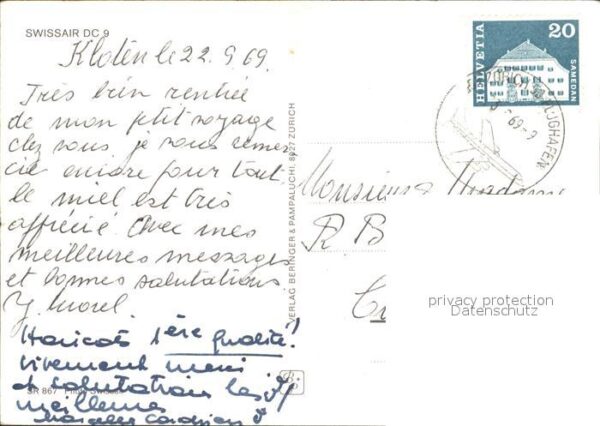 SWISSAIR DC 9
Kloten le 22.9.69.
Très bien rentrée
de mon petit voyage
chez vous je vous remer
cie encore pour tout
le miel est très
apprécié Avec mes
meilleures messages
et bonnes salutations
Y. Morel.
Haricots 1ère qualité!
vivement merci
et salutations les
meilleures
SR 867 Photo Swissair
VERLAG BERINGER & PAMPALUCHI, 8027 ZÜRICH
HELVETIA
20
SAMEDAN
ZÜRICH FLUGHAFEN
69-9
Monsieur Madame
R B
privacy protection
Datenschutz